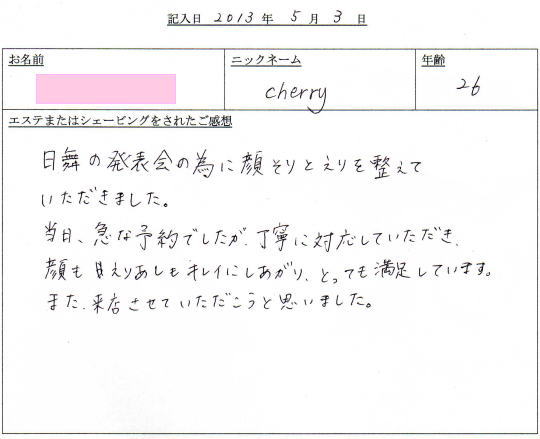 記入日 2013 年 5 月 3 日
お名前 ニックネーム 年齢
cherry 26
エステまたはシェービングをされたご感想
日舞の発表会の為に顔そりとえりを整えて
いただきました。
当日、急な予約でしたが、丁寧に対応していただき、
顔も えりあしもキレイにしあがり、とっても満足しています。
また、来店させていただこうと思いました。